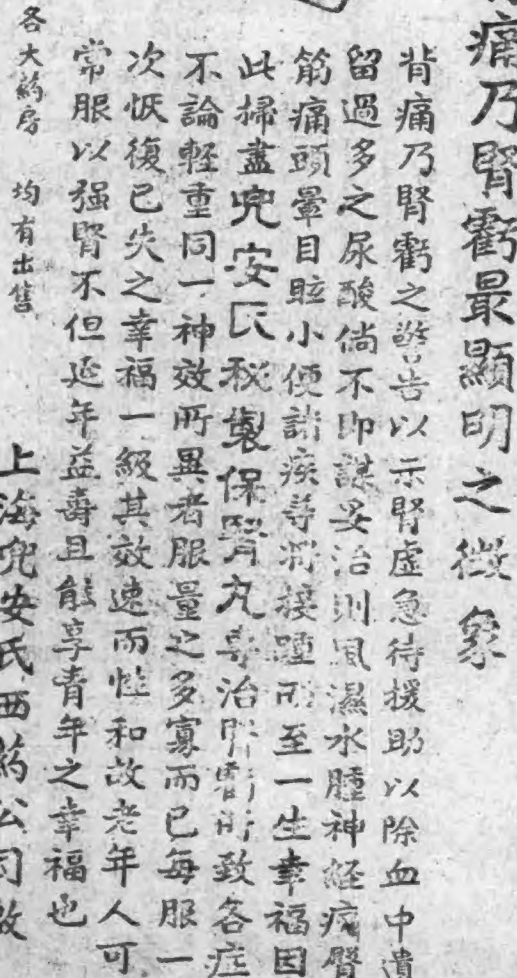 痛乃腎虧最顯明之徵象
背痛乃腎虧之警告以示腎虛急待援助以除血中遺
留過多之尿酸倘不即謀妥治則風濕水腫神經痛腎
筋痛頭暈目眩小便諸疾等將接踵而至一生幸福因
此掃盡兜安氏秘製保腎丸專治腎虧所致各症
不論輕重同一神效所異者服量之多寡而已每服一
次恢復已失之幸福一級其效速而性和故老年人可
常服以强腎不但延年益壽且能享青年之幸福也
各大藥房 均有出售
上海兜安氏西藥公司啟